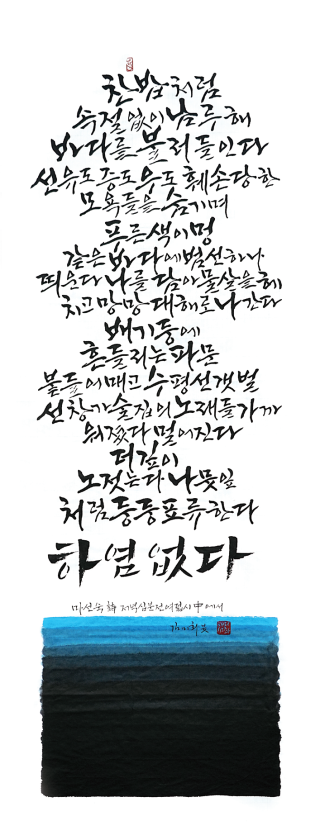 찬밥처럼
속절없이 남루해
바다를 불러들인다
선유도 등도 우도 훼손당한
모욕들을 숨기며
푸른색이 멍
같은 바다에 범선하나
띄운다 나를 담아 물살을 헤
치고 망망대해로 나간다
배기둥에
흔들리는 파문
붙들어매고 수평선 갯벌
선창가 술집의 노래들 가까
워졌다 멀어진다
더 깊이
노젓는다 나뭇잎
처럼 둥둥 표류한다
하염없다
詩 저녁 中에서